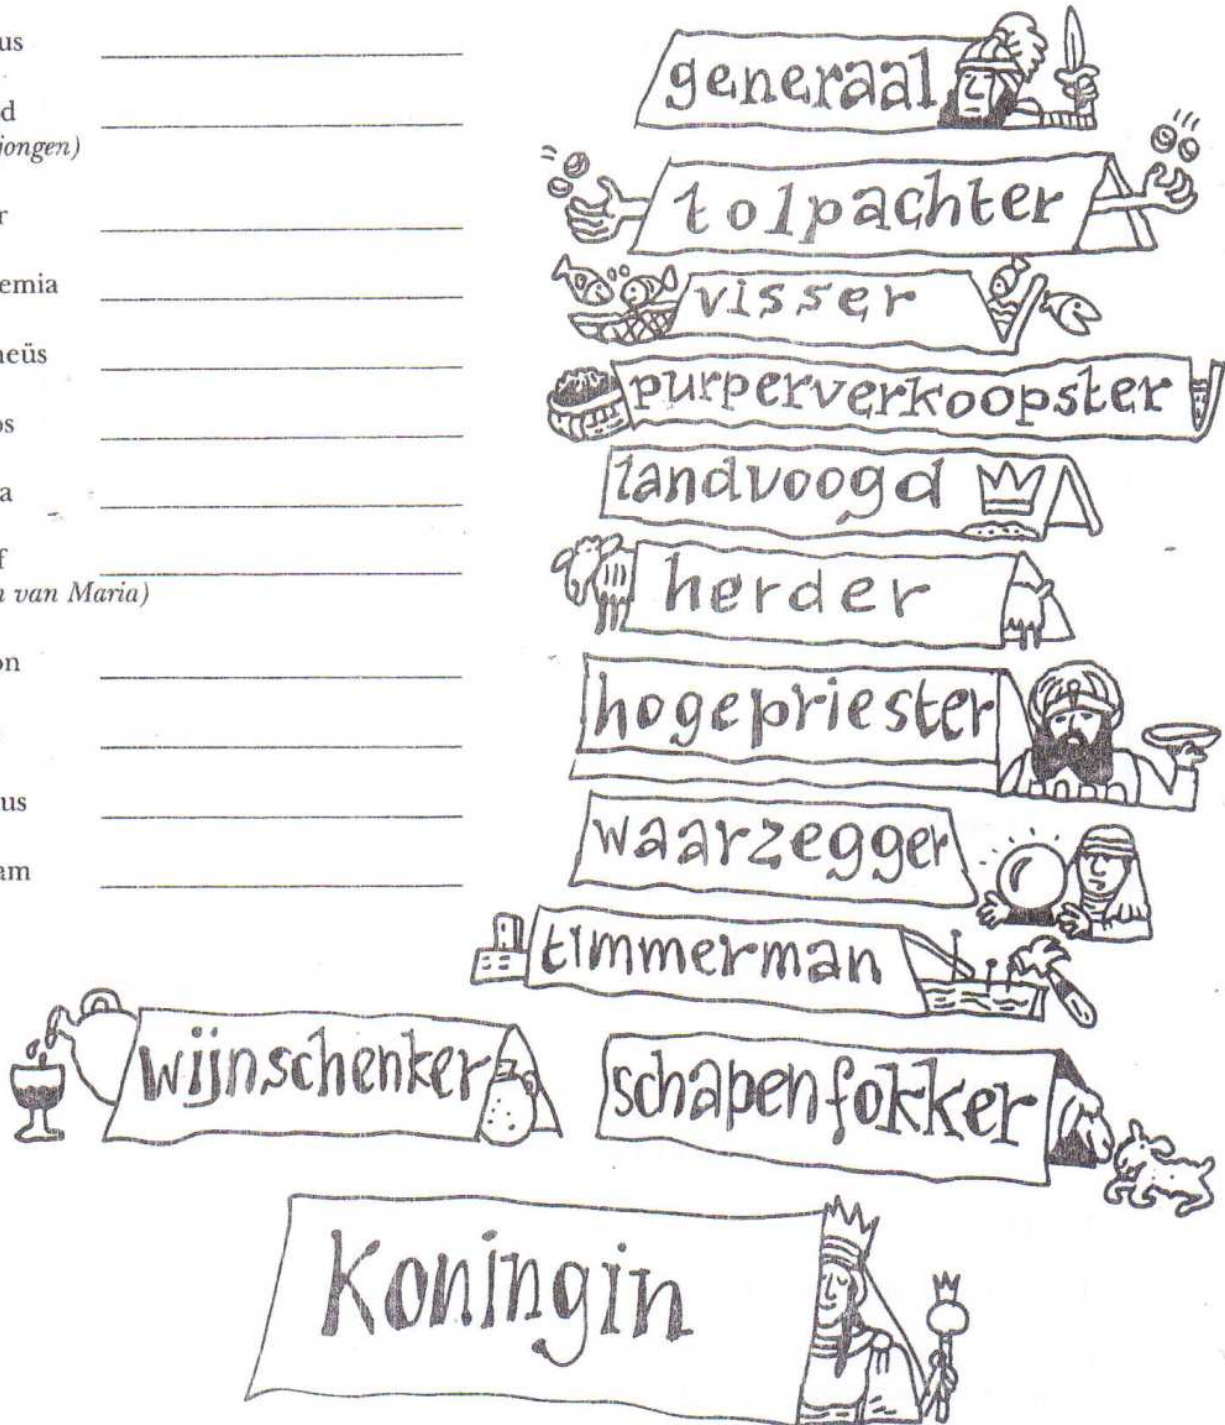 us
d
jongen)
r
emia
neüs
os
a
f
n van Maria)
on
us
am
generaal
tolpachter
visser
purperverkoopster
landvoogd
herder
hogepriester
waarzegger
timmerman
wijnschenker
schapenfokker
Koningin